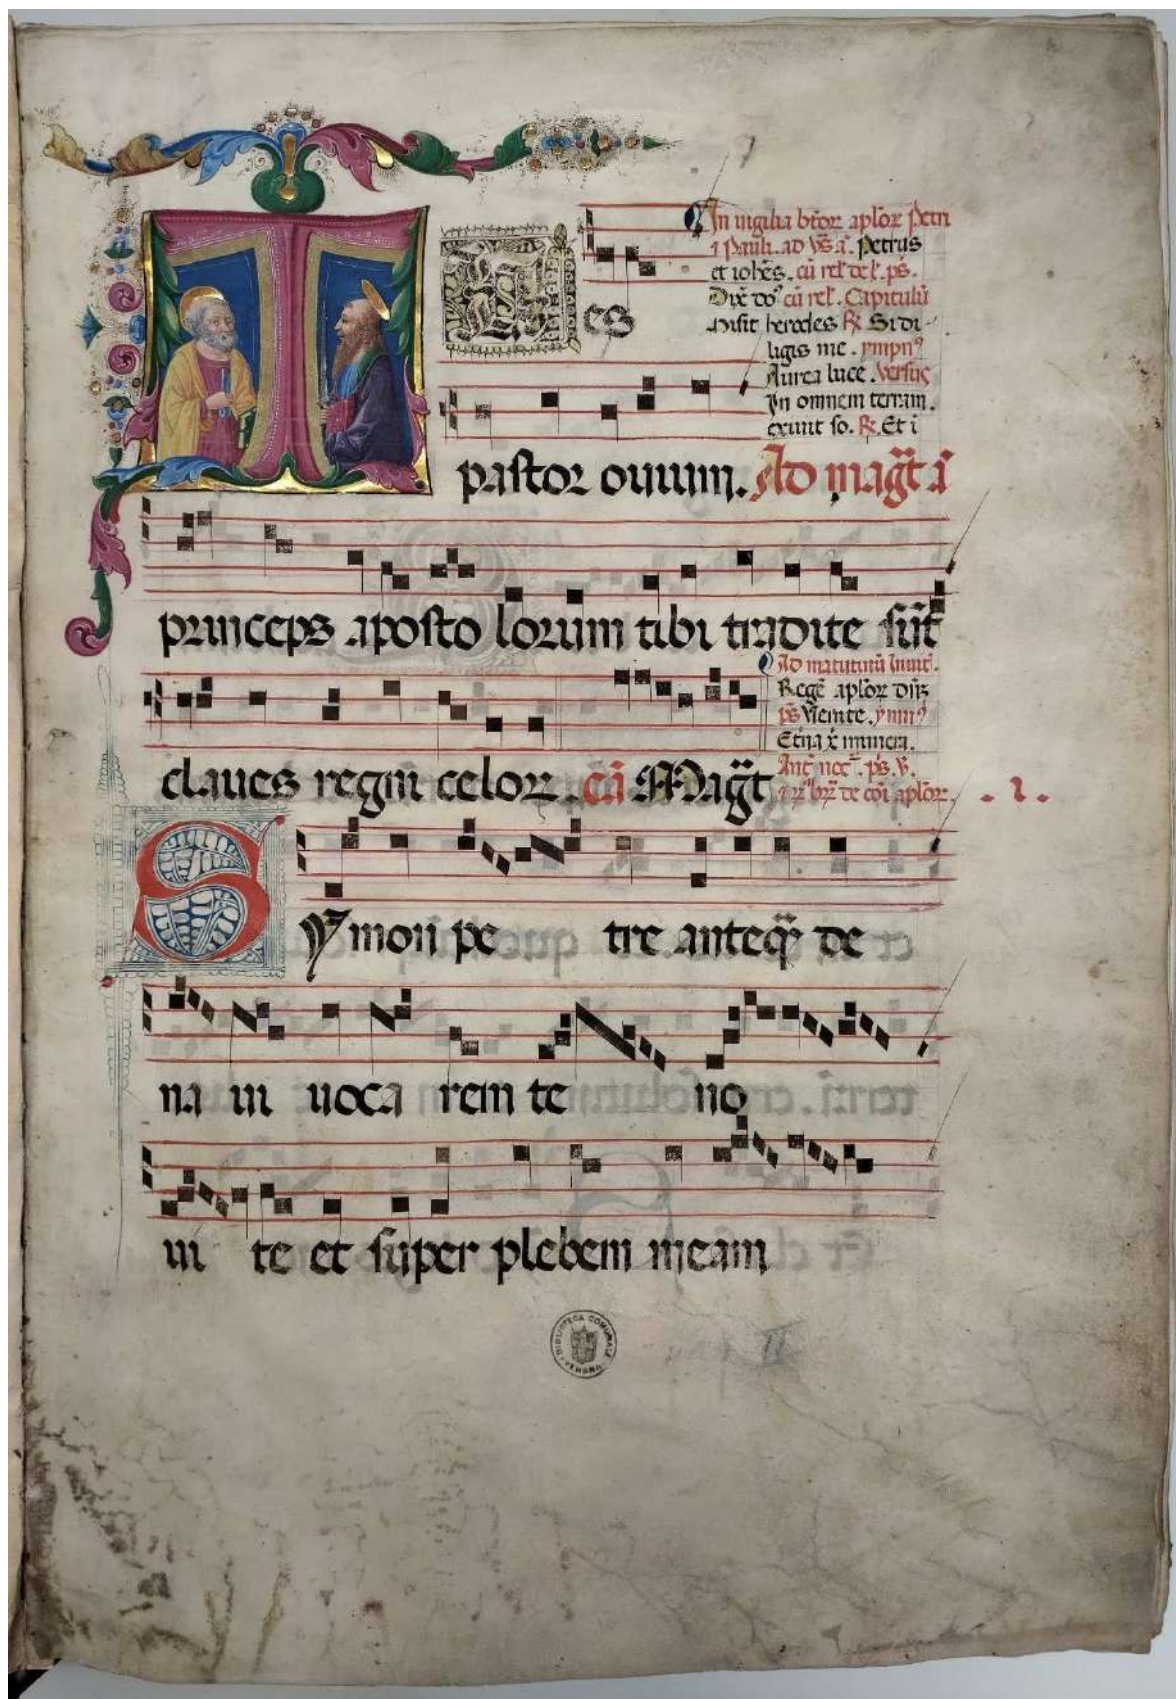 In uigilia btõr aplõr Petri
⁊ Pauli. ad Vs̃ añ. Petrus
et iohẽs. cũ rel̃ de l̃. ps̃.
Dix̃ do⁹ cũ rel̃. Capitulũ
Misit herodes ℟ Si di-
ligis me. ympn⁹
Aurea luce. Versus
In omnem terram.
exiuit so. ℟. Et ĩ
TV es
pastor ouium. Ad mag̃t ã
princeps aposto lorum tibi tradite sũt
Ad matutinũ Inuit̃.
Regẽ aplõr dñ̃
ps̃ Venite. ymn⁹
Et̃na x̃ munera.
Ant̃ noc̃. ps̃. v̄.
claues regni celoꝝ. cũ Mag̃t ⁊ r̃ br̃ de cõi aplõr. . 1 .
SYmon pe tre anteq̃ de
na ui uoca rem te no
ui te et super plebem meam
BIBLIOTECA COMUNALE